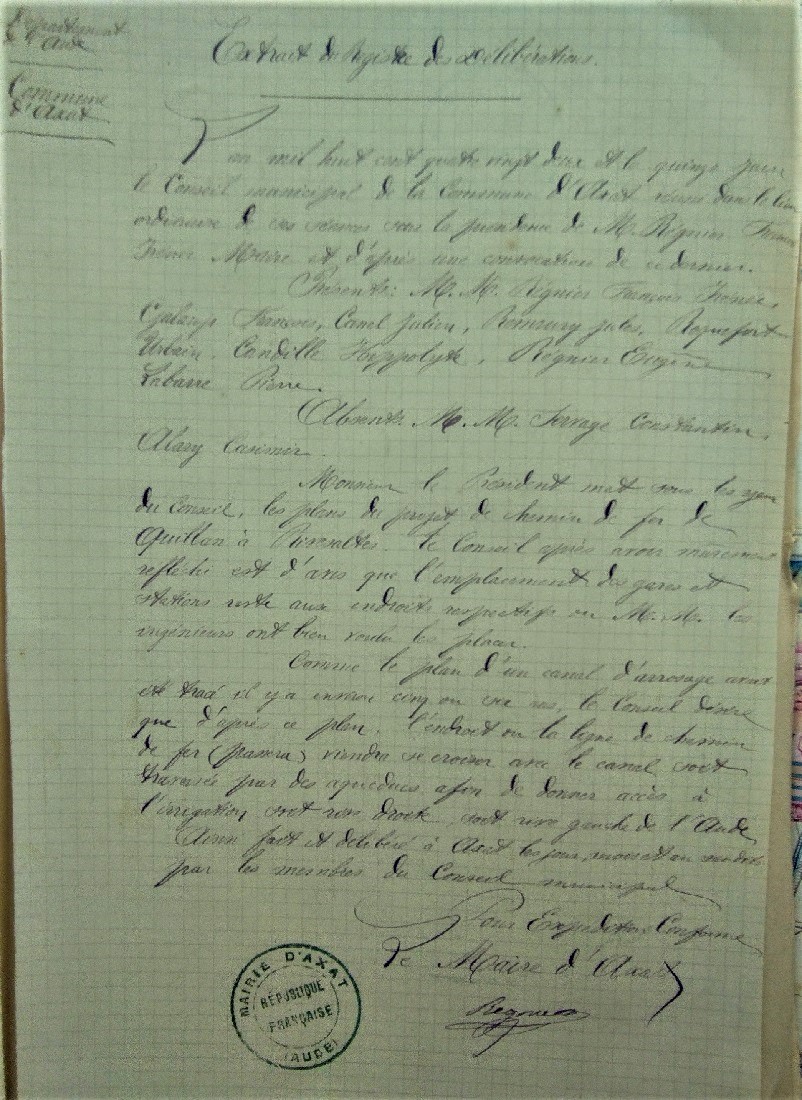 Département
d'Aude
Commune
d'Axat
Extrait du Registre des Délibérations.
L'an mil huit cent quatre vingt douze et le quinze
le Conseil municipal de la Commune d'Axat réuni dans le lieu
ordinaire de ses séances sous la présidence de M. Régnier François
Irénée Maire et d'après une convocation de ce dernier.
Présents: M. M. Régnier François Irénée,
François, Canel Julien, Jules, Roquefort
Urbain, Candille Hyppolyte, Régnier Eugène
Labarre Pierre.
Absents M. M. Constantin,
Alary Casimir.
Monsieur le Président met sous les yeux
du Conseil, les plans du projet de chemin de fer de
Quillan à Rivesaltes. Le Conseil après avoir mûrement
réfléchi est d'avis que l'emplacement des gares et
stations reste aux endroits respectifs ou M. M. les
ingénieurs ont bien voulu les placer.
Comme le plan d'un canal d'arrosage avait
été tracé il y a environ cinq ou six ans, le Conseil désire
que d'après ce plan, l'endroit ou la ligne de chemin
de fer (passera) viendra se croiser avec le canal soit
traversée par des aqueducs afin de donner accès à
l'irrigation soit rive droite, soit rive gauche de l'Aude
Ainsi fait et délibéré à Axat les jour, mois et an susdits
par les membres du Conseil municipal
Pour Expédition Conforme
Le Maire d'Axat
Regnier
MAIRIE D'AXAT
RÉPUBLIQUE
FRANÇAISE
(AUDE)